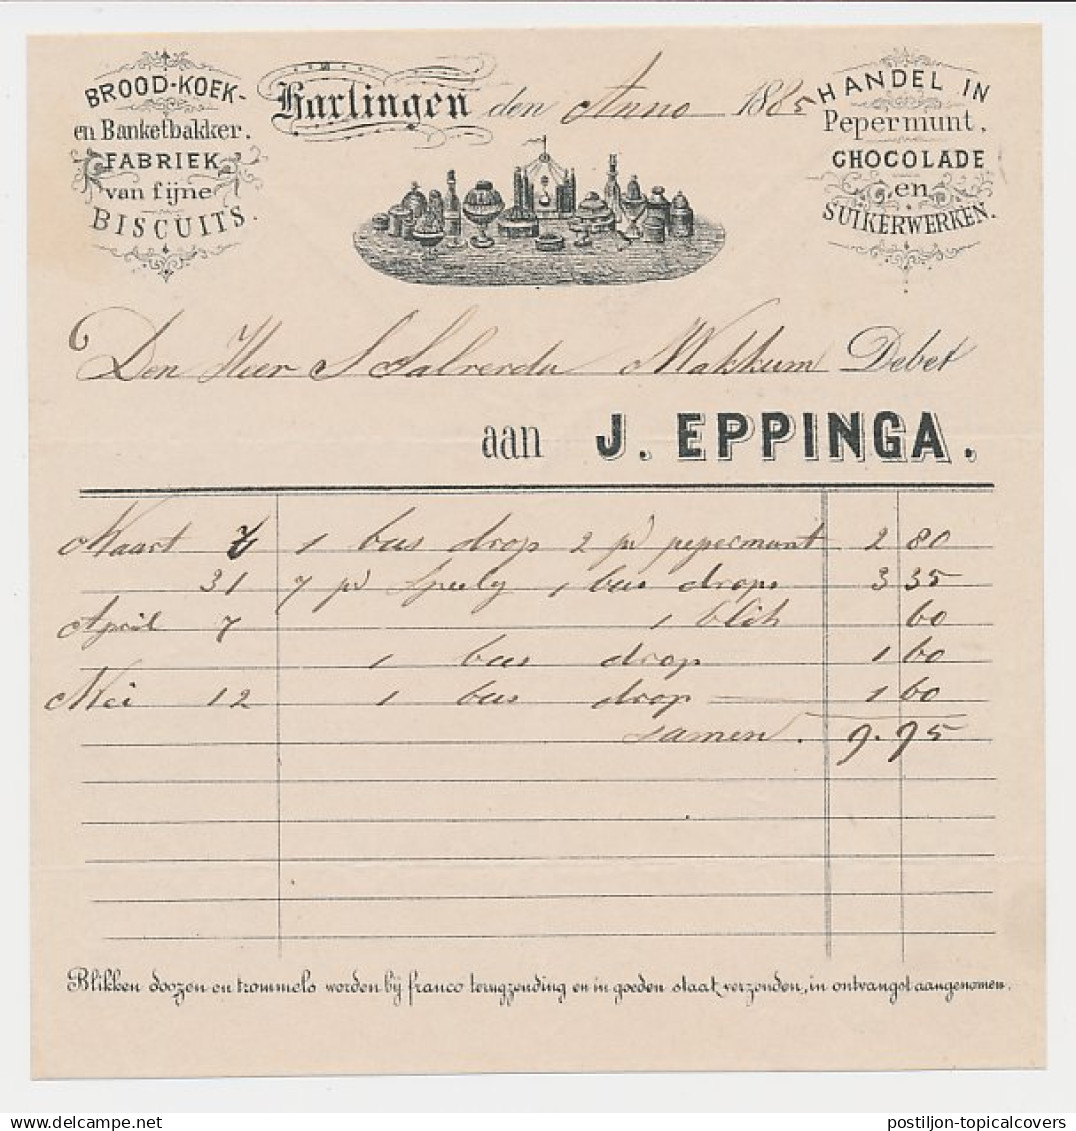 BROOD-KOEK-
en Banketbakker.
FABRIEK
van fijne
BISCUITS.
Harlingen den Anno 1885
HANDEL IN
Pepermunt,
CHOCOLADE
en
SUIKERWERKEN.
Den Heer S Salverda Makkum Debet
aan J. EPPINGA.
Maart 7 1 bus drop 2 pd pepermunt 2 80
31 7 pd 1 bus drops 3 35
April 7 1 blik 60
1 bus drop 1 60
Mei 12 1 bus drop 1 60
samen. 9.95
Blikken doozen en trommels worden bij franco terugzending en in goeden staat verzonden, in ontvangst aangenomen.
postiljon-topicalcovers